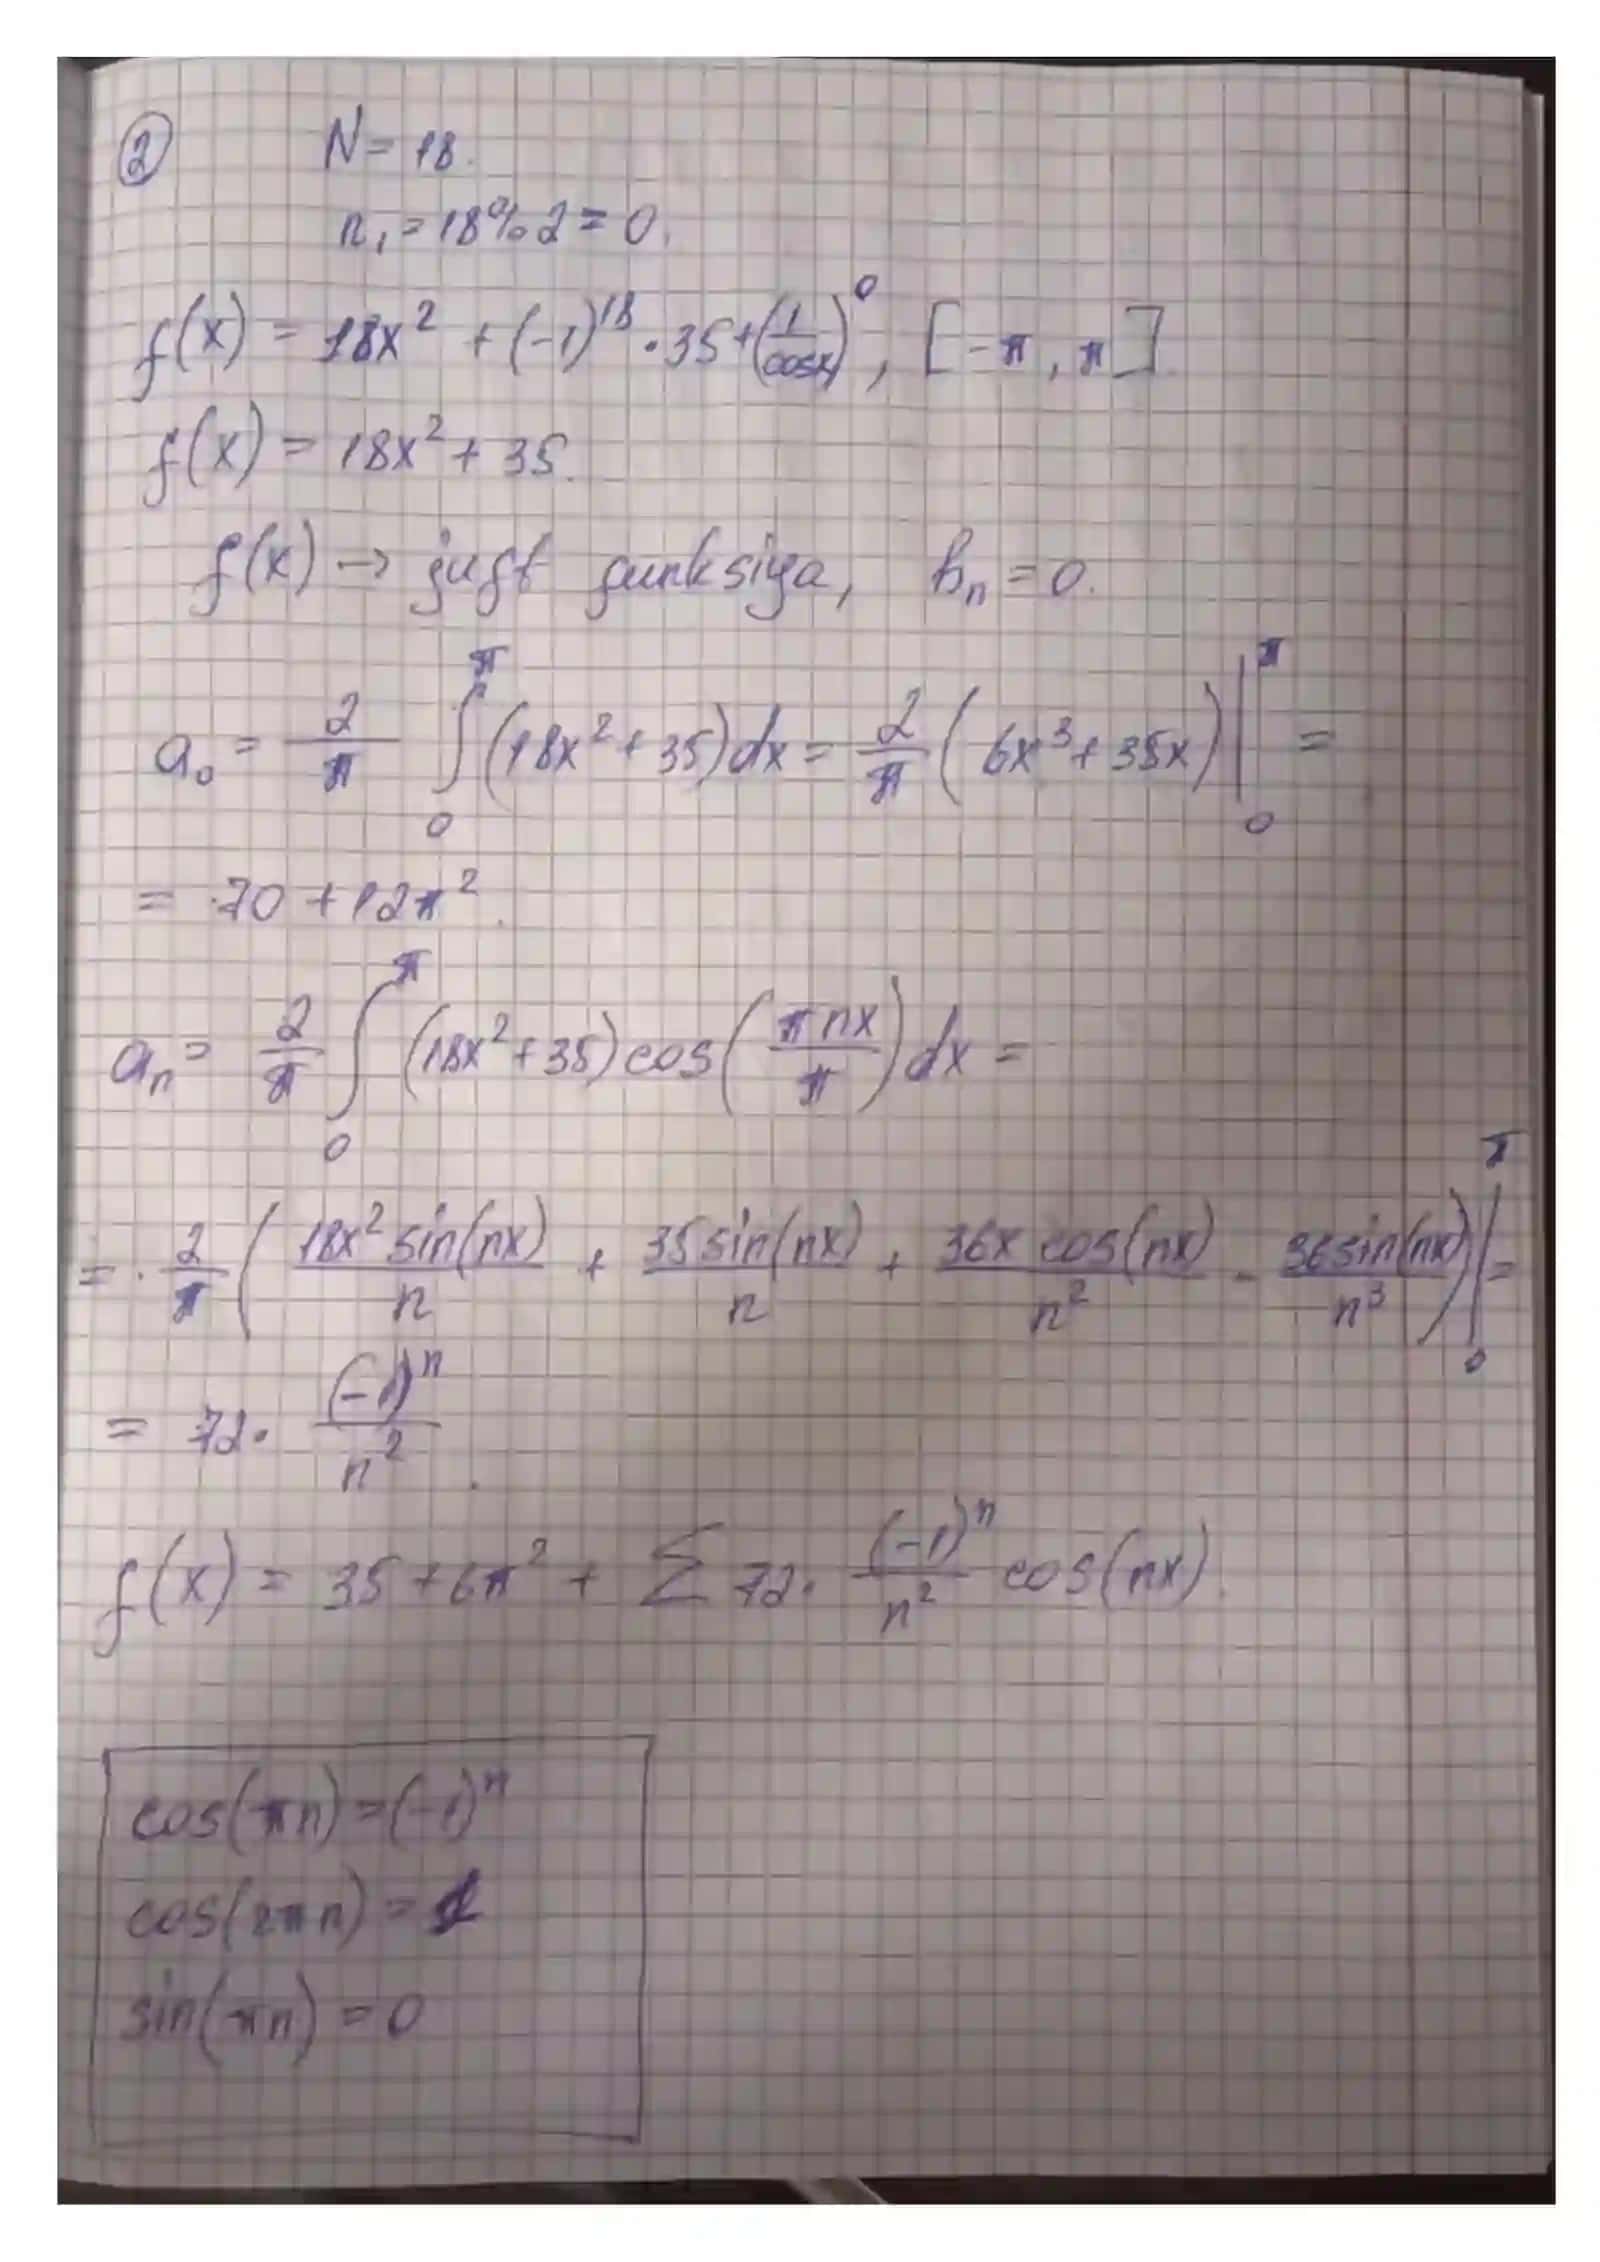 2 N = 18.
n₁ = 18%2 = 0.
f(x) = 18x² + (-1)¹⁸ · 35 + (1/cosx)⁰, [-π, π].
f(x) = 18x² + 35.
f(x) → juft funksiya, bₙ = 0.
a₀ = 2/π ∫₀^π (18x² + 35) dx = 2/π (6x³ + 35x) |₀^π =
= 70 + 12π².
aₙ = 2/π ∫₀^π (18x² + 35) cos(πnx/π) dx =
= 2/π (18x² sin(nx)/n + 35 sin(nx)/n + 36x cos(nx)/n² - 36 sin(nx)/n³) |₀^π =
= 72 · (-1)ⁿ/n².
f(x) = 35 + 6π² + ∑ 72 · (-1)ⁿ/n² cos(nx).
cos(πn) = (-1)ⁿ
cos(2πn) = 1
sin(πn) = 0